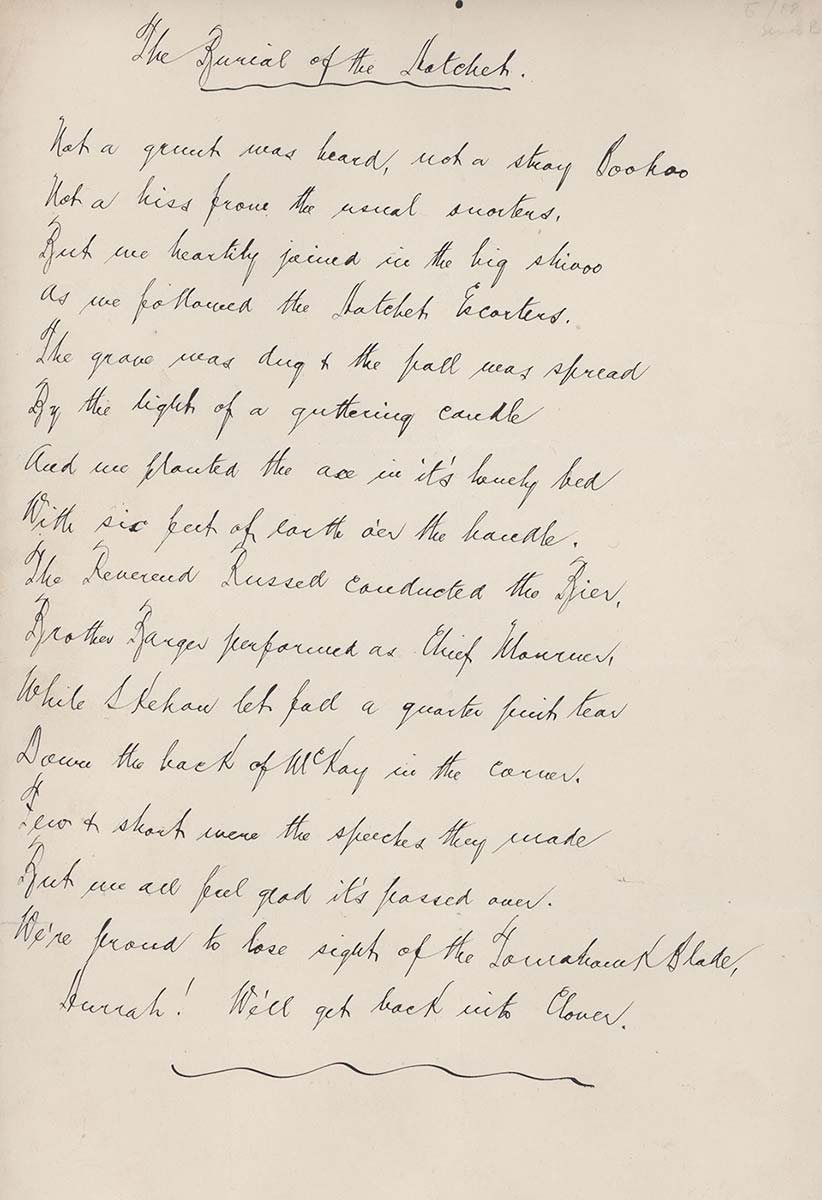 The Burial of the Hatchet.
Not a grunt was heard, not a stray Boohoo
Not a hiss from the usual snorters,
But we heartily joined in the big shivoo
As we followed the Hatchet Escorters.
The grave was dug & the pall was spread
By the light of a guttering candle
And we planted the axe in it's lonely bed
With six feet of earth o'er the handle.
The Reverend Russell conducted the Bier,
Brother Barger performed as Chief Mourner,
While Skehan let fall a quarter pint tear
Down the back of McKay in the corner.
Few & short were the speeches they made
But we all feel glad it's passed over.
We're proud to lose sight of the Tomahawk Blade,
Hurrah! We'll get back into Clover.